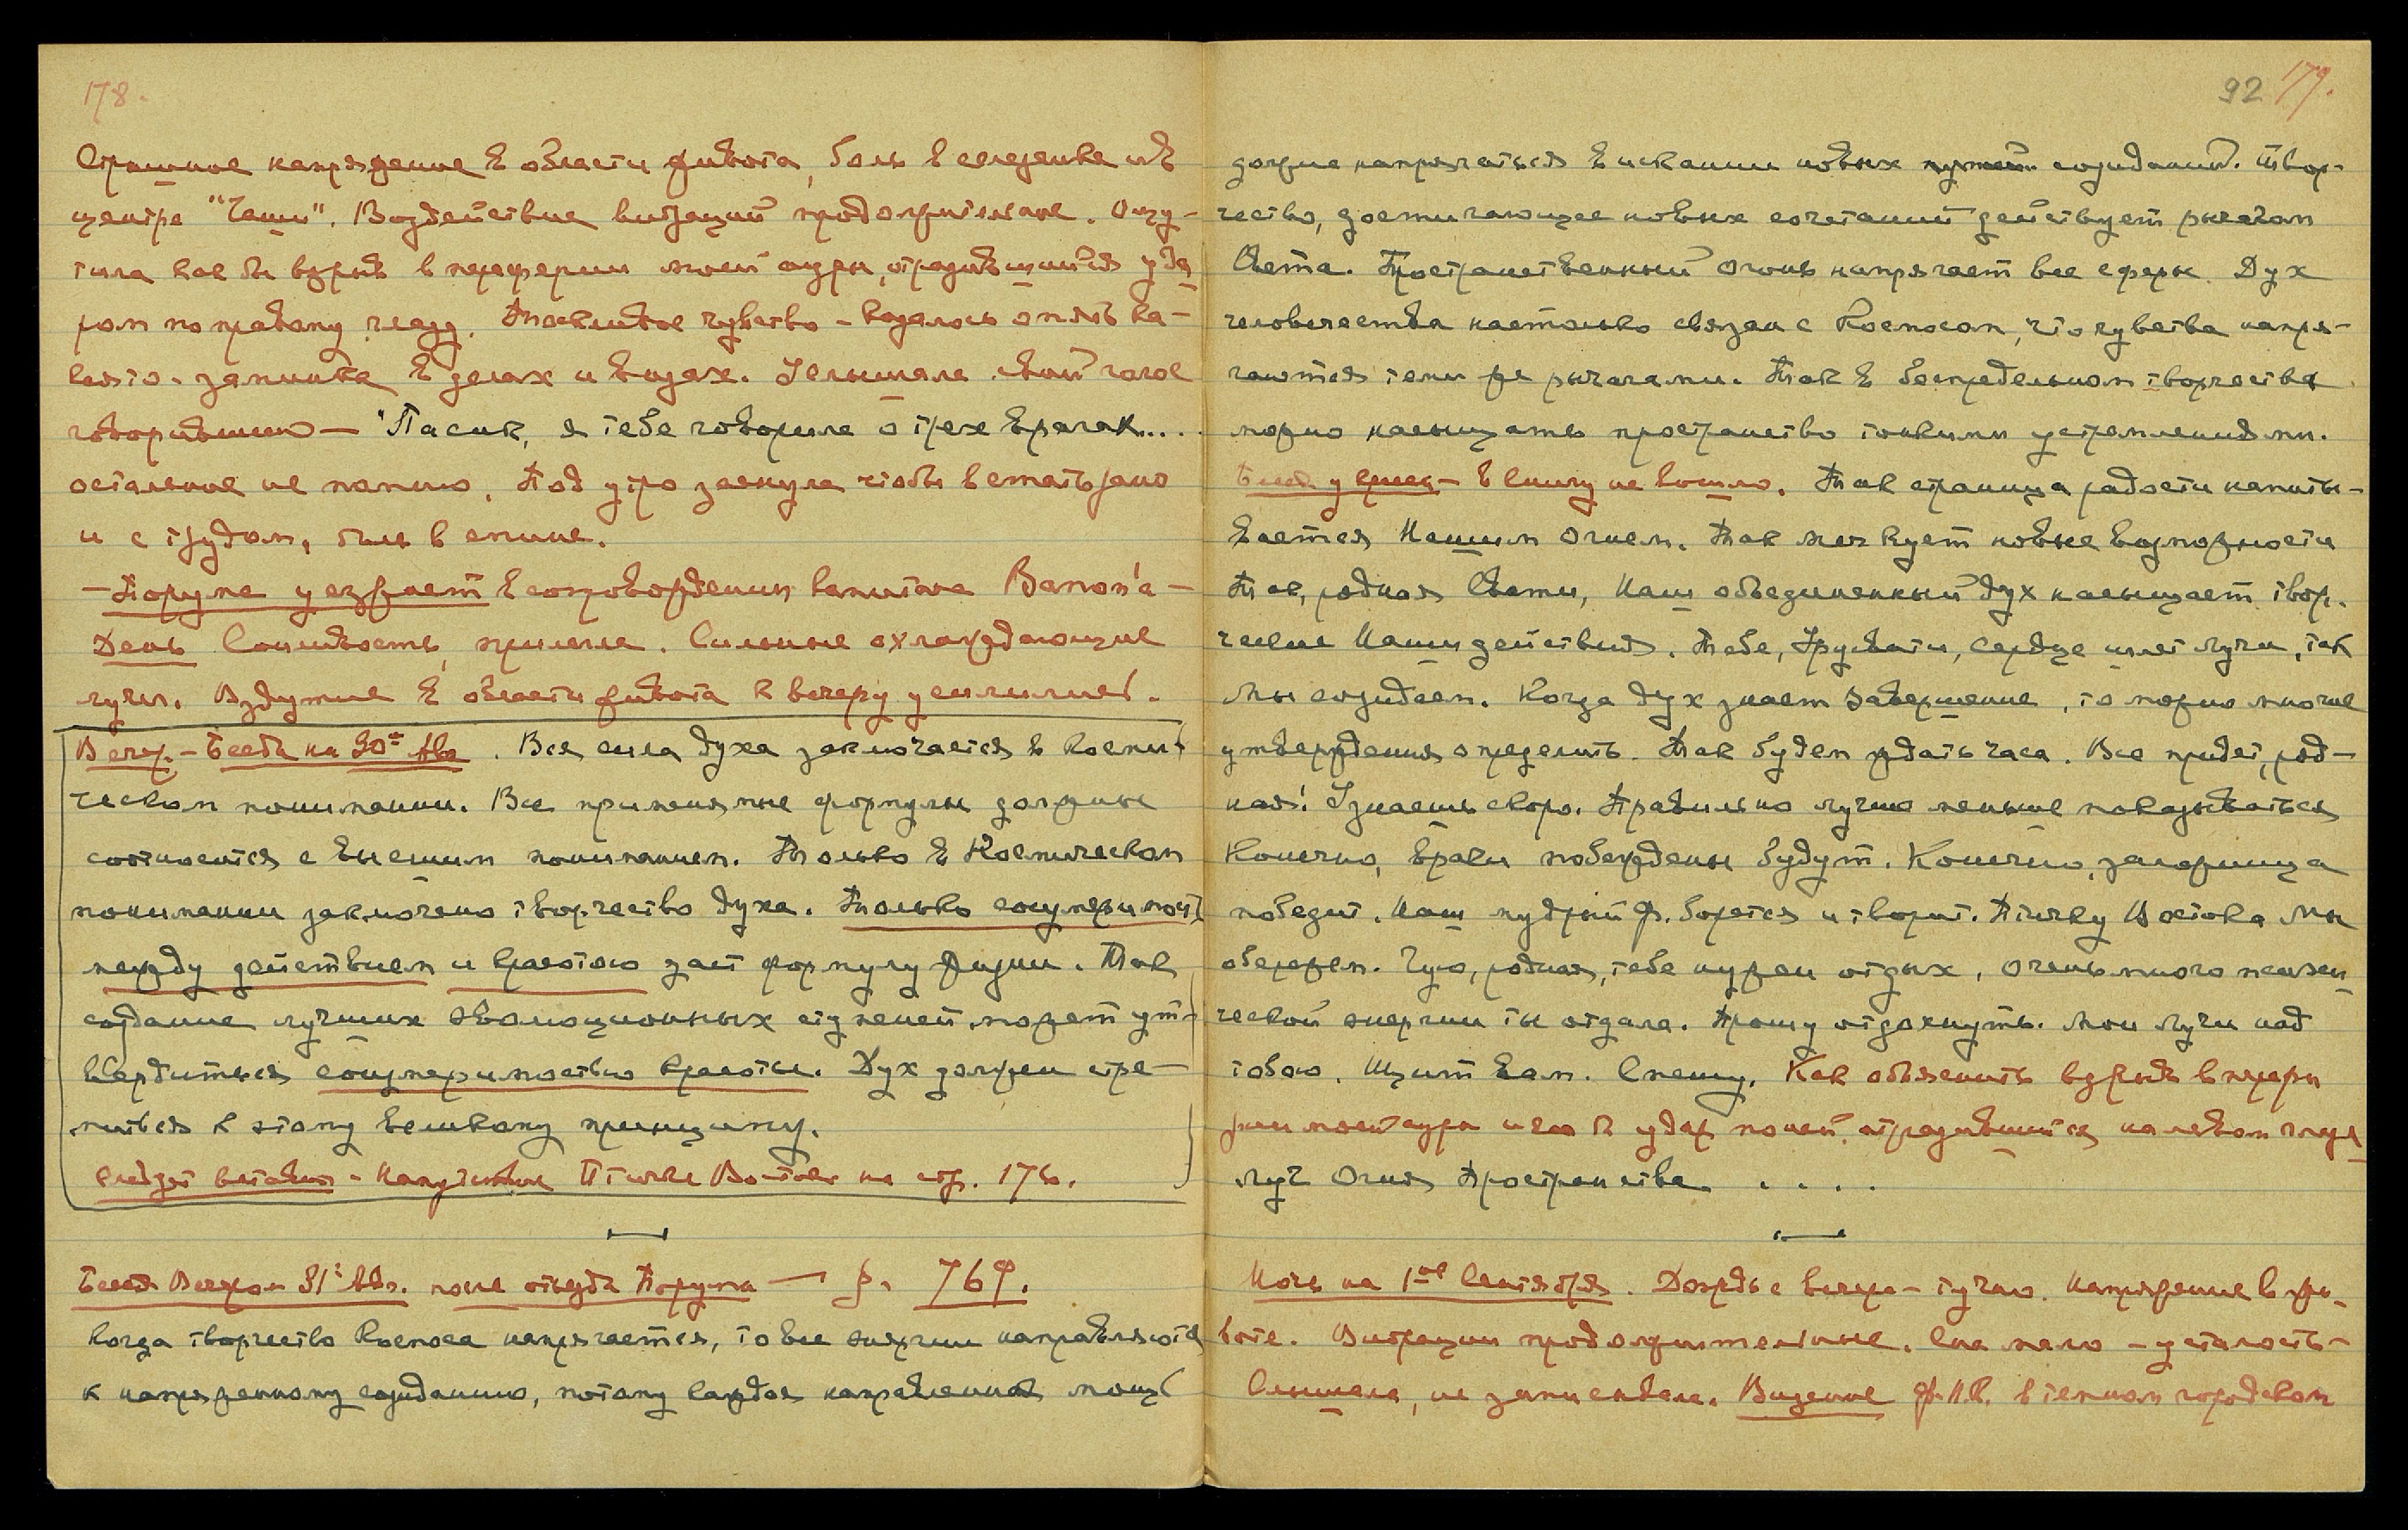 178.
Страшное напряжение в области живота, боль в селезенке и в
центре "Чаши". Воздействие вибраций продолжительное. Ощу-
тила как бы взрыв в периферии моей ауры, отразившийся уда
ром по правому глазу. Тоскливое чувство - казалось опять ка-
кая то - заминка в делах и визах. Услышала свой голос
говоривший — "Пасик, я тебе говорила о трех врагах....
остальное не помню. Под утро заснула чтобы встать рано
и с трудом, боль в спине.
- Порума уезжает в сопровождении капитана Banon'a -
День Сонливость, прилегла. Сильные охлаждающие
лучи. Вздутие в области живота к вечеру усилилось.
Вечер. - Беседа на 30ое Авг. Вся сила духа заключается в косми
ческом понимании. Все применимые формулы должны
соотноситься с высшим пониманием. Только в Космическом
понимании заключено творчество духа. Только соизмеримость
между действием и красотою дает формулу жизни. Так
создание лучших эволюционных ступеней может ут-
вердиться соизмеримостью красоты. Дух должен стре-
миться к этому великому принципу.
следует вставка - Напутствие Птичке Востока на стр. 176.
Беседа Вечером 31ое Авг. после отъезда Порумы — § 769.
Когда творчество Космоса напрягается, то все энергии направляются
к напряженному созиданию, потому каждая направленная мощь
92 179.
должна напрягаться в искании новых путей созиданий. Твор-
чество, достигающее новых сочетаний действует рычагом
Света. Пространственный огонь напрягает все сферы. Дух
человечества настолько связан с Космосом, что чувства напря-
гаются теми же рычагами. Так в беспредельном творчестве
можно насыщать пространство тонкими устремлениями.
- в книгу не вошло. Так страница радости напиты-
вается Нашим Огнем. Так меч кует новые возможности
Так, родная Свати, Наш объединенный дух насыщает твор.
ческие Наши действия. Тебе, Урусвати, сердце шлет лучи, так
Мы созидаем. Когда дух знает завершение, то можно многие
утверждения определить. Так будем ждать часа. Все придет, род-
ная! Узнаешь скоро. Правильно лучше меньше показываться
Конечно, враги побеждены будут. Конечно, заморщица
победит. Наш мудрый Ф. борется и творит. Птичку Востока Мы
обережем. Чую, родная, тебе нужен отдых, очень много психи
ческой энергии ты отдала. Прошу отдохнуть. Мои Лучи над
тобою. Щит вам. Спешу. Как объяснить взрыв в перифе
рии моей ауры и как бы удар, отразившийся на левом глазу
Луч Огня Пространства. . . . .
Ночь на 1ое Сентября. Дождь с вечера - тучно. Напряжение в жи-
воте. Вибрации продолжительные. Сна мало - усталость -
Слышала, не записывала. Видение Ф.К.В. в темном городском